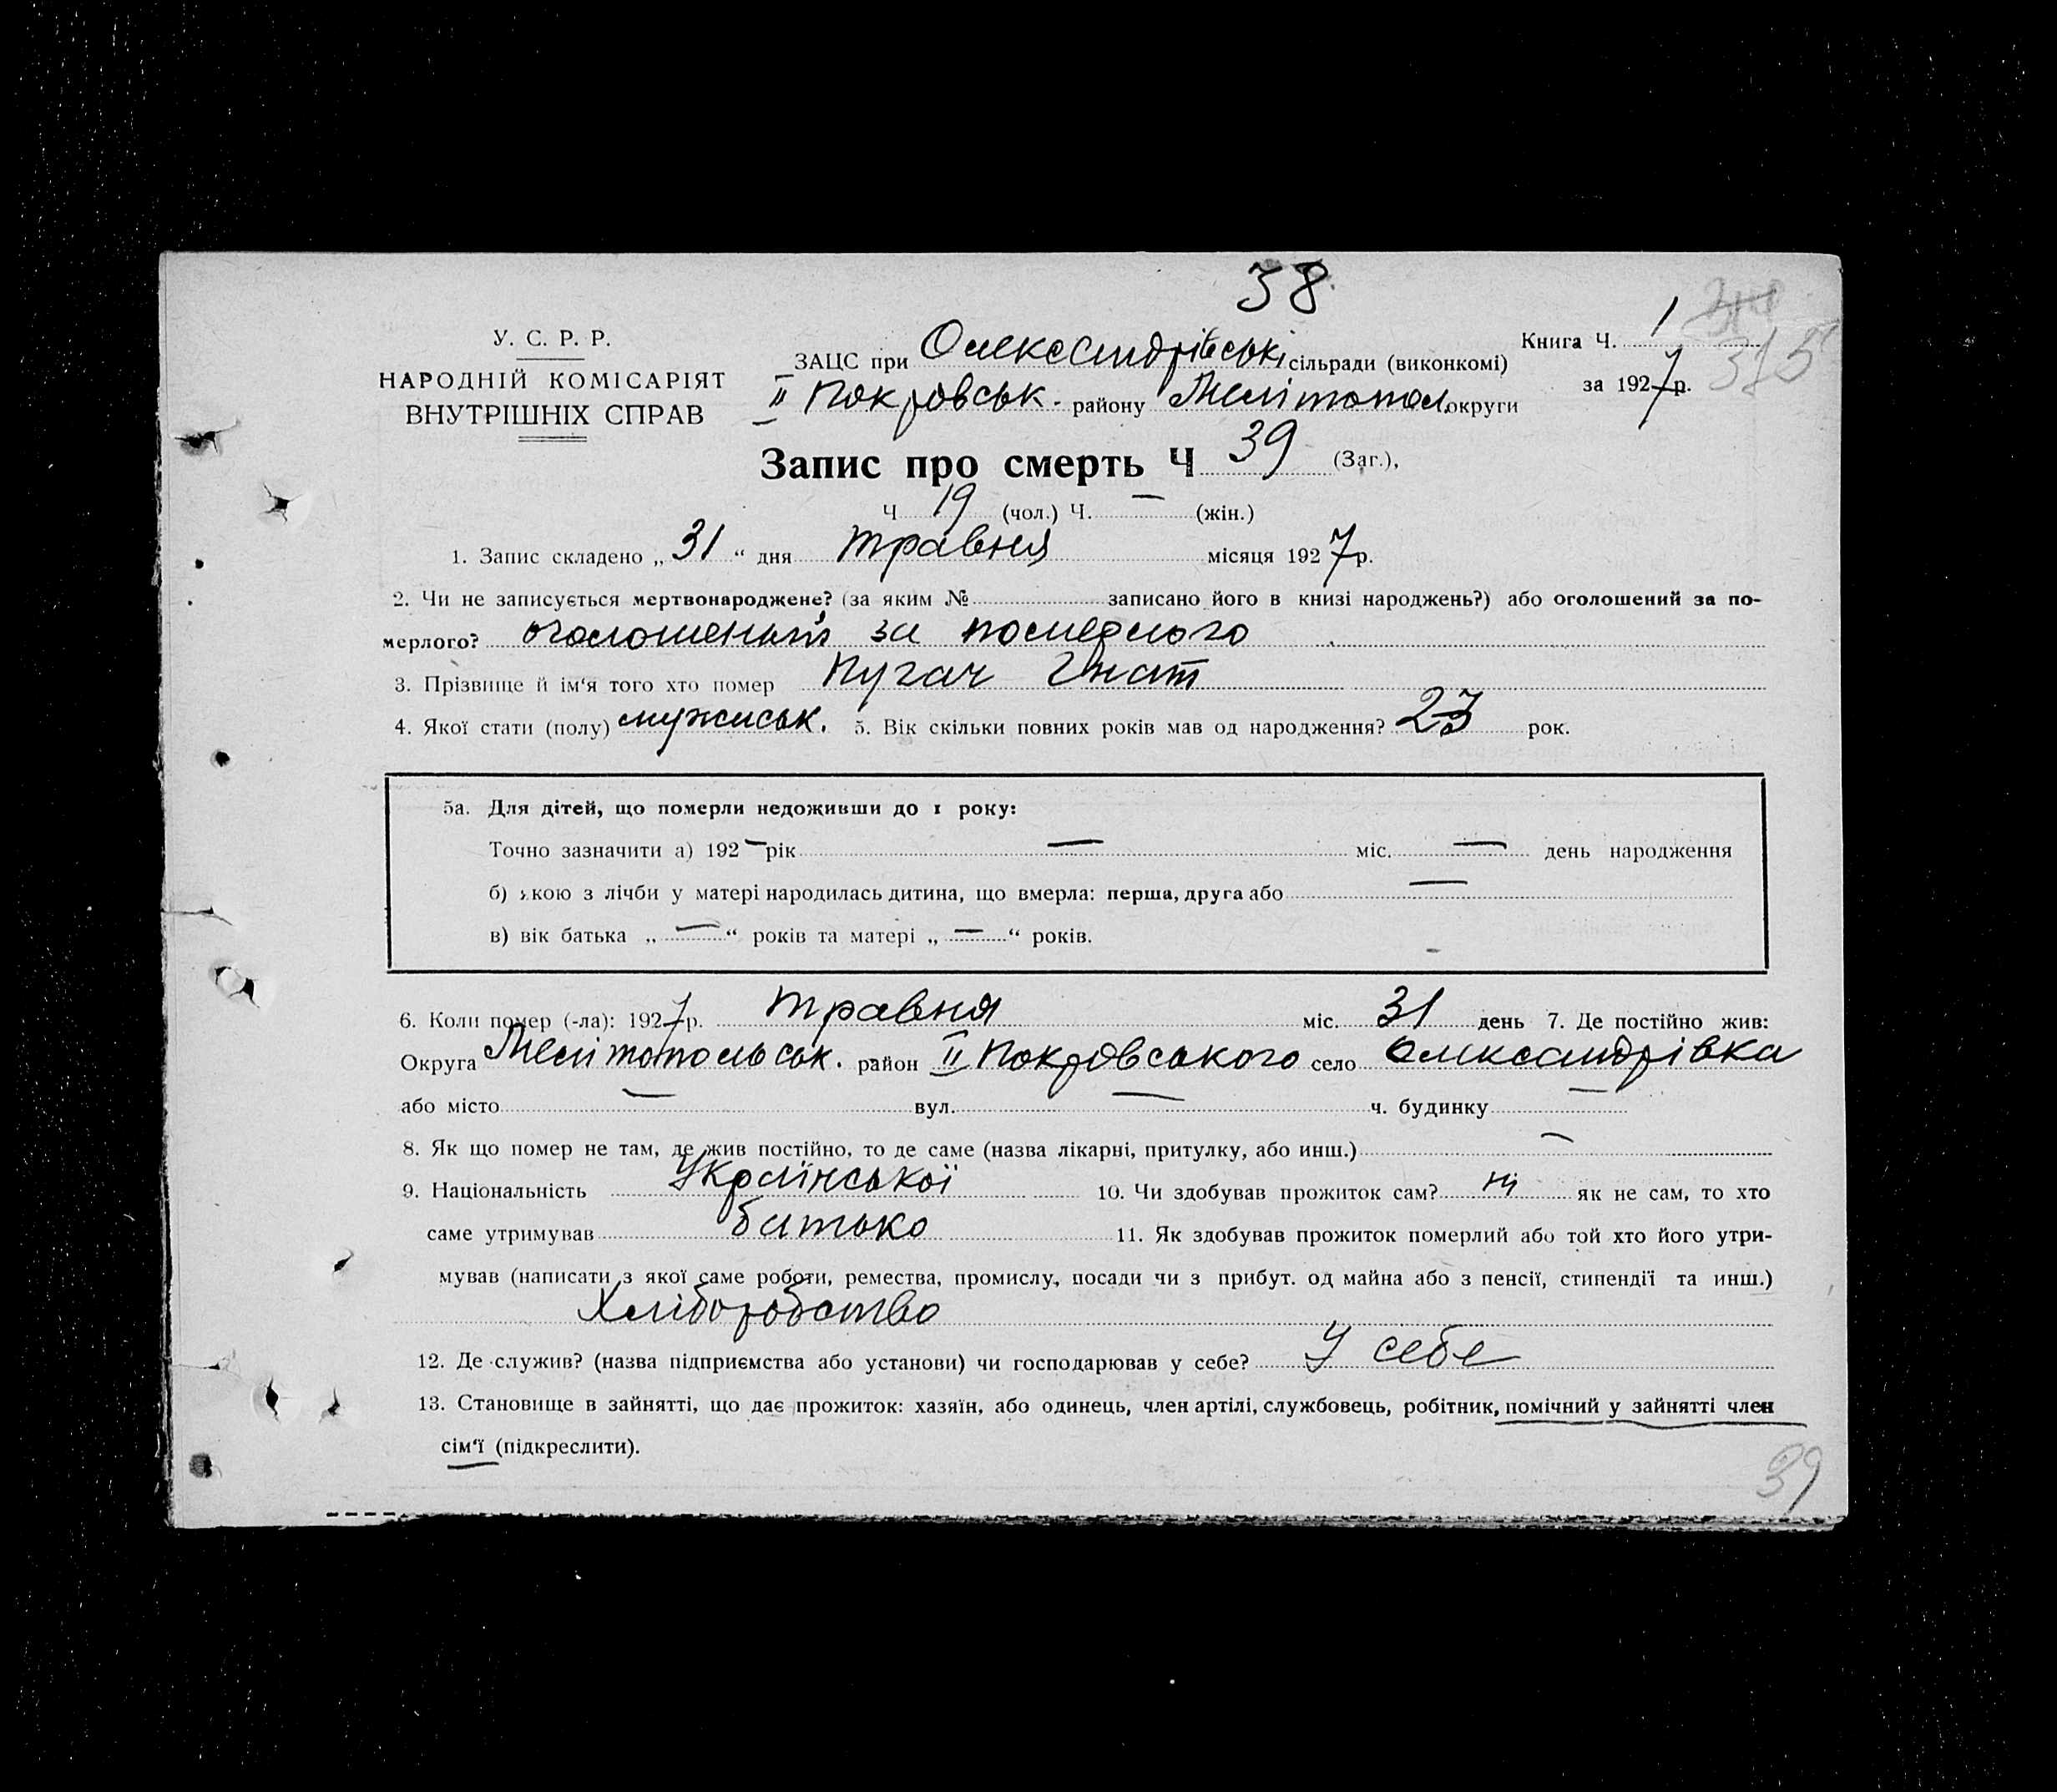 38
У. С. Р. Р.
НАРОДНІЙ КОМІСАРІЯТ
ВНУТРІШНІХ СПРАВ
ЗАЦС при Олександрівські сільради (виконкомі)
II Покровськ. району Мелітопол. округи
Книга Ч. 1
за 1927 р.
315
Запис про смерть Ч 39 (Заг.),
Ч 19 (чол.) Ч. — (жін.)
1. Запис складено „ 31 “ дня травня місяця 1927 р.
2. Чи не записується мертвонароджене? (за яким № записано його в книзі народжень?) або оголошений за по-
мерлого? оголошений за
3. Прізвище й ім‘я того хто помер Пугач Гнат
4. Якої стати (полу) мужиськ. 5. Вік скільки повних років мав од народження? рок.
5а. Для дітей, що померли недоживши до 1 року:
Точно зазначити а) 192 — рік — міс. — день народження
б) якою з лічби у матері народилась дитина, що вмерла: перша, друга або —
в) вік батька „ — “ років та матері „ — “ років.
6. Коли помер (-ла): 1927 р. травня міс. 31 день 7. Де постійно жив:
Округа Мелітопольськ. район II Покровського село Олександрівка
або місто — вул. — ч. будинку —
8. Як що помер не там, де жив постійно, то де саме (назва лікарні, притулку, або инш.) —
9. Національність Української 10. Чи здобував прожиток сам? ні як не сам, то хто
саме утримував батько 11. Як здобував прожиток померлий або той хто його утри-
мував (написати з якої саме роботи, ремества, промислу, посади чи з прибут. од майна або з пенсії, стипендії та инш.)
Хліборобство
12. Де служив? (назва підприємства або установи) чи господарював у себе? У себе
13. Становище в зайнятті, що дає прожиток: хазяїн, або одинець, член артілі, службовець, робітник, помічний у зайнятті член
сім‘ї (підкреслити).
39